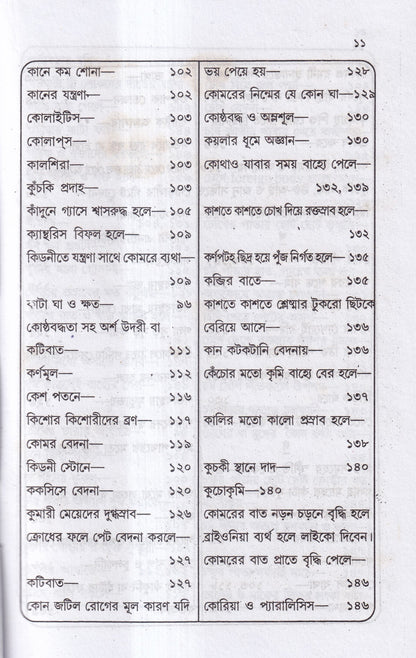 ১১
কানে কম শোনা— ১০২
কানের যন্ত্রণা— ১০২
কোলাইটিস— ১০৩
কোলাপ্স— ১০৩
কালশিরা— ১০৩
কুঁচকি প্রদাহ— ১০৩
কাঁদুনে গ্যাসে শ্বাসরুদ্ধ হলে— ১০৫
ক্যান্থরিস বিফল হলে— ১০৯
কিডনীতে যন্ত্রণা সাথে কোমরে ব্যথা—
১০৯
কাটা ঘা ও ক্ষত— ৯৬
কোষ্ঠবদ্ধতা সহ অর্শ উদরী বা
কটিবাত— ১১১
কর্ণমূল— ১১২
কেশ পতনে— ১১৬
কিশোর কিশোরীদের ব্রণ— ১১৭
কোমর বেদনা— ১১৯
কিডনী স্টোনে— ১২০
ককসিসে বেদনা— ১২০
কুমারী মেয়েদের দুগ্ধস্রাব— ১২৬
ক্রোধের ফলে পেট বেদনা করলে—
১২৭
কটিবাত— ১২৭
কোন জটিল রোগের মূল কারণ যদি
ভয় পেয়ে হয়— ১২৮
কোমরের নিম্নের যে কোন ঘা—১২৯
কোষ্ঠবদ্ধ ও অম্লশূল— ১৩০
কয়লার ধূমে অজ্ঞান— ১৩০
কোথাও যাবার সময় বাহ্যে পেলে—
১৩২, ১৩৯
কাশতে কাশতে চোখ দিয়ে রক্তস্রাব হলে—
১৩২
কর্ণপটহ ছিদ্র হয়ে পুঁজ নির্গত হলে— ১৩৫
কব্জির বাতে— ১৩৫
কাশতে কাশতে শ্লেষ্মার টুকরো ছিটকে
বেরিয়ে আসে— ১৩৬
কান কটকটানি বেদনায়— ১৩৬
কেঁচোর মতো কৃমি বাহ্যে বের হলে—
১৩৭
কালির মতো কালো প্রস্রাব হলে—
১৩৮
কুচকী স্থানে দাদ— ১৪০
কুচোকৃমি—১৪০
কোমরের বাত নড়ন চড়নে বৃদ্ধি হলে
ব্রাইওনিয়া ব্যর্থ হলে লাইকো দিবেন।
কোমরের বাত প্রাতে বৃদ্ধি পেলে—
১৪৬
কোরিয়া ও প্যারালিসিস— ১৪৬